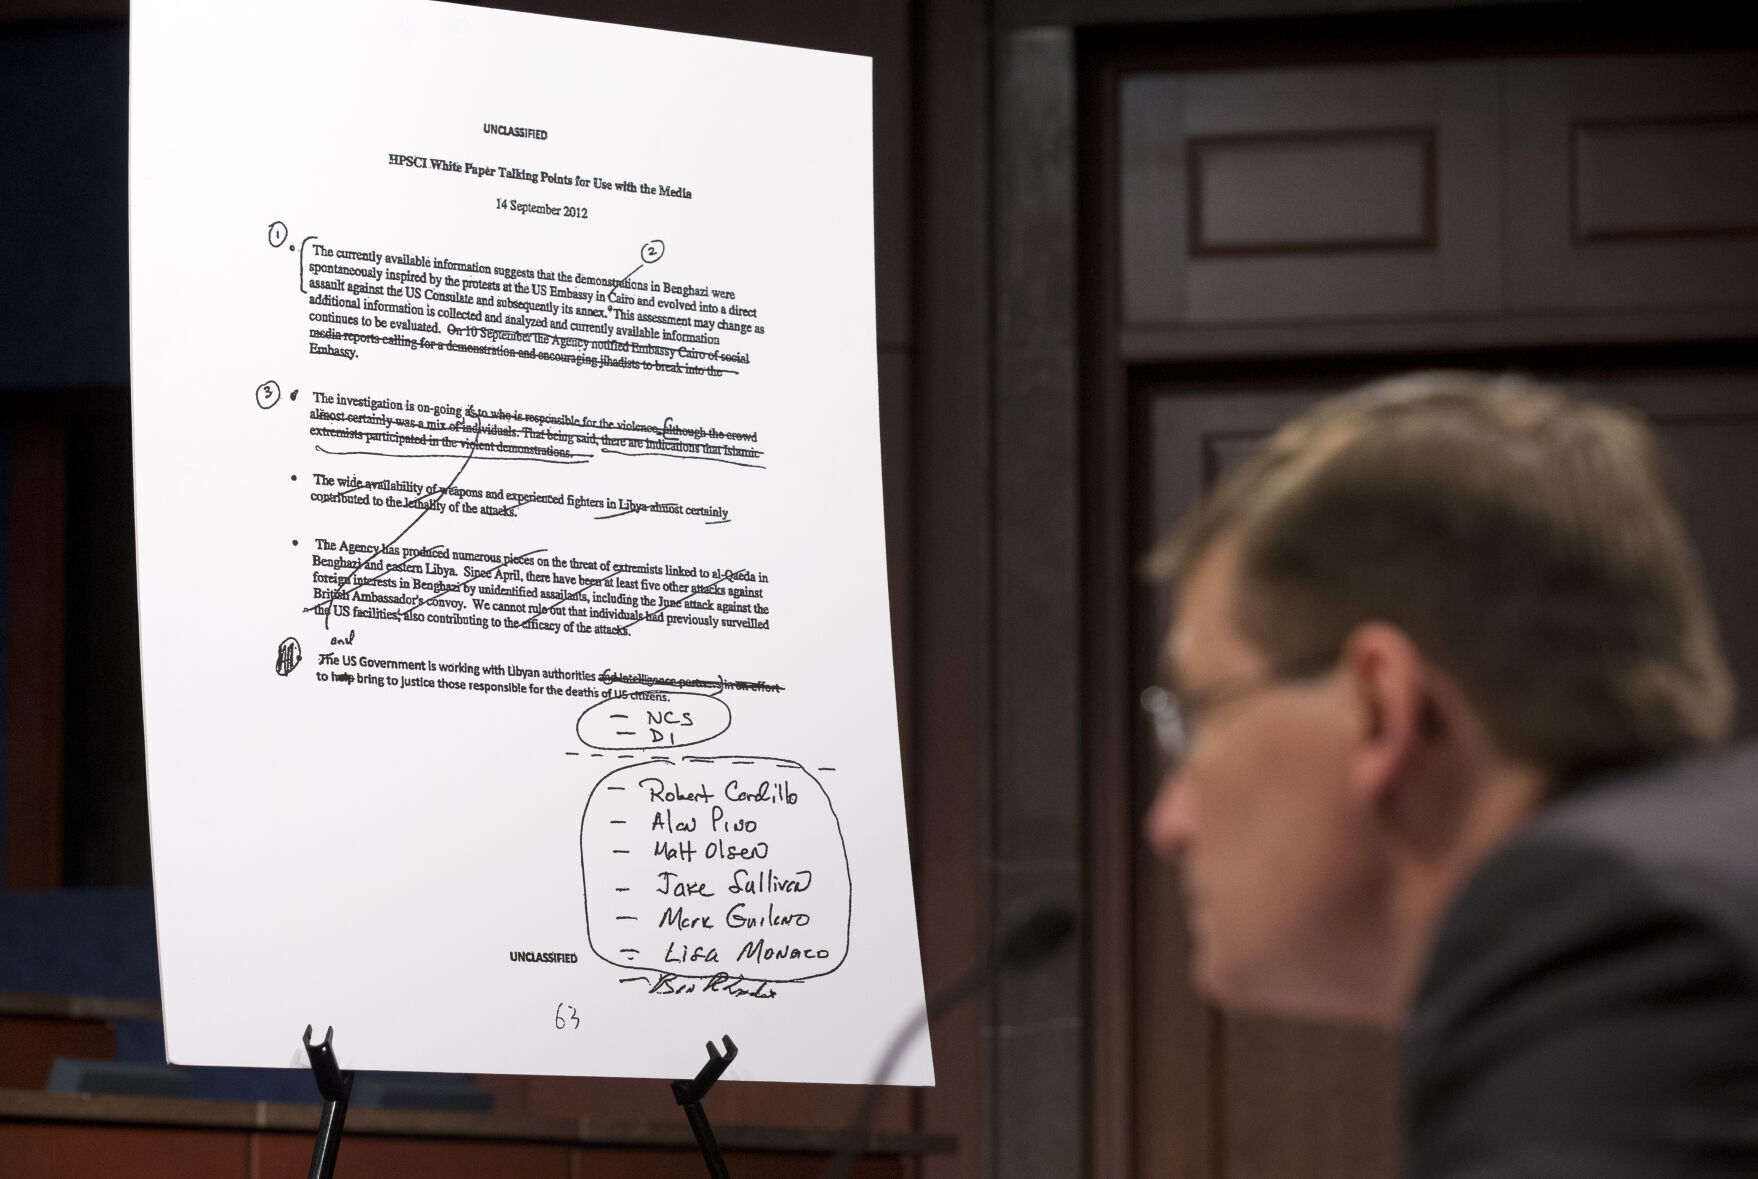 UNCLASSIFIED
HPSCI White Paper Talking Points for Use with the Media
14 September 2012
1
2
• The currently available information suggests that the demonstrations in Benghazi were
spontaneously inspired by the protests at the US Embassy in Cairo and evolved into a direct
assault against the US Consulate and subsequently its annex. This assessment may change as
additional information is collected and analyzed and currently available information
continues to be evaluated. On 10 September the Agency notified Embassy Cairo of social
media reports calling for a demonstration and encouraging jihadists to break into the
Embassy.
3
• The investigation is on-going as to who is responsible for the violence, although the crowd
almost certainly was a mix of individuals. That being said, there are indications that Islamic
extremists participated in the violent demonstrations.
• The wide availability of weapons and experienced fighters in Libya almost certainly
contributed to the lethality of the attacks.
• The Agency has produced numerous pieces on the threat of extremists linked to al-Qaeda in
Benghazi and eastern Libya. Since April, there have been at least five other attacks against
foreign interests in Benghazi by unidentified assailants, including the June attack against the
British Ambassador's convoy. We cannot rule out that individuals had previously surveilled
the US facilities, also contributing to the efficacy of the attacks.
and
The US Government is working with Libyan authorities and intelligence in an effort
to help bring to justice those responsible for the deaths of US citizens.
— NCS
— DI
— Robert Cardillo
— Alan Pino
— Matt Olsen
— Jake Sullivan
— Mark Guileno
— Lisa Monaco
UNCLASSIFIED
— Ben Rhodes
63